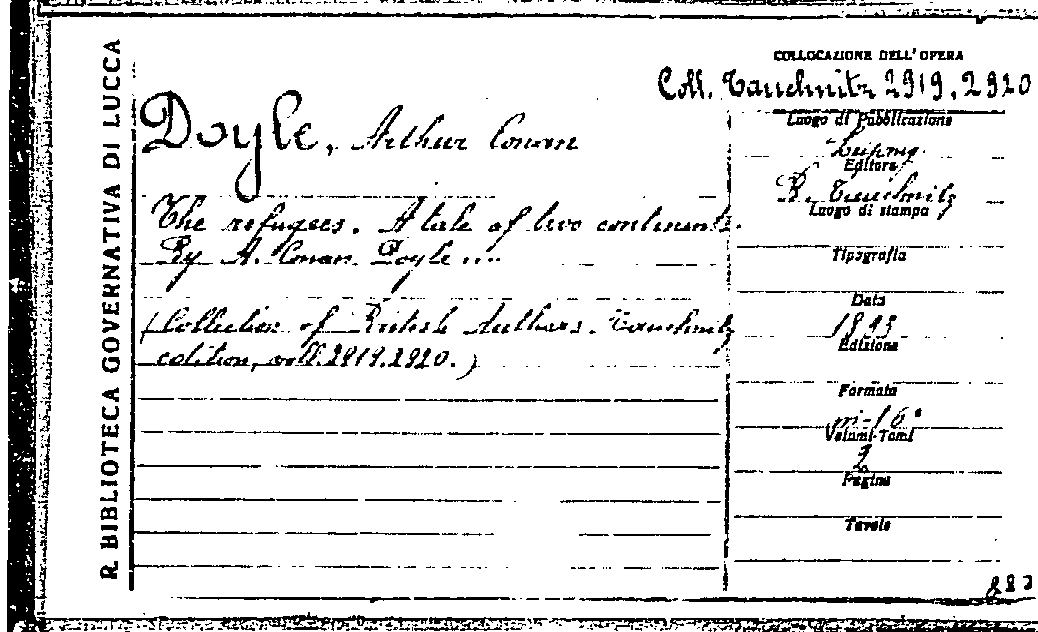 R. BIBLIOTECA GOVERNATIVA DI LUCCA
COLLOCAZIONE DELL' OPERA
Coll. Tauchnitz 2919, 2920
Doyle, Arthur Conan
The refugees. A tale of two continents.
By A. Conan Doyle ....
(Collection of British Authors. Tauchnitz
edition, voll. 2919.2920.)
Luogo di Pubblicazione
Leipzig
Editore
B. Tauchnitz
Luogo di stampa
Tipografia
Data
1893
Edizione
Formato
in-16°
Volumi-Tomi
2
Pagine
Tavole